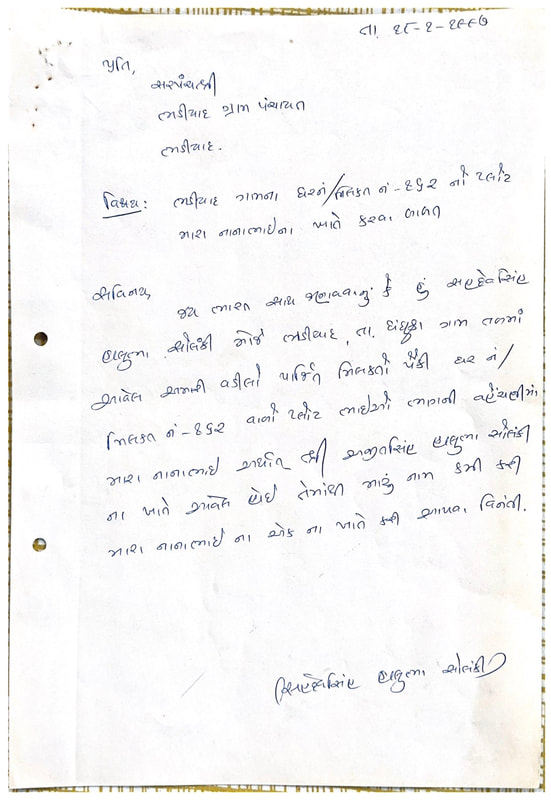 તા. ૨૮-૨-૧૯૯૭
પ્રતિ,
સરપંચશ્રી
ભડીયાદ ગ્રામ પંચાયત
ભડીયાદ.
વિષય: ભડીયાદ ગામના ઘરનં/મિલકત નં-૧૬૨ નો પ્લોટ
મારા નાનાભાઇના ખાતે કરવા બાબત
સવિનય,
જય ભારત સાથ જણાવવાનું કે હું સહદેવસિંહ
હાલુભા સોલંકી મોજે ભડીયાદ, તા. ધંધુકા ગામ તળમાં
આવેલ અમારી વડીલો પાર્જિત મિલકતો પૈકી ઘર નં/
મિલકત નં-૧૬૨ વાળો પ્લોટ ભાઇઓ ભાગની વહેંચણીમાં
મારા નાનાભાઇ અજીતસિંહ હાલુભા સોલંકી
ના ખાતે આવેલ હોઇ તેમાંથી મારું નામ કમી કરી
મારા નાનાભાઇ ના એક ના ખાતે કરી આપવા વિનંતી.
સહદેવસિંહ હાલુભા સોલંકી